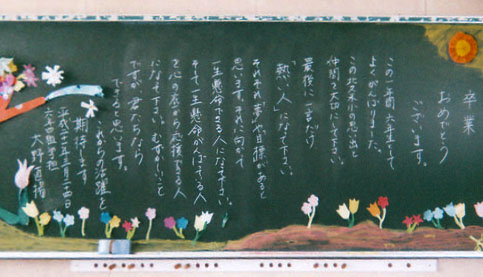 卒業
おめでとう
ございます。
この一年間、六年生として
よくがんばりました。
この北久米の思い出と
仲間を大切にして下さい。
最後に一言だけ
「熱い人」になって下さい。
それぞれ夢や目標があると
思います。それに向かって
一生懸命できる人になって下さい。
そして一生懸命がんばってる人
を心の底から応援できる人
になって下さい。むずかしいこと
ですが、君たちなら
できると思います。
これからの活躍を
期待します。
平成二十三年三月二十四日
六年四組担任
大野直揮